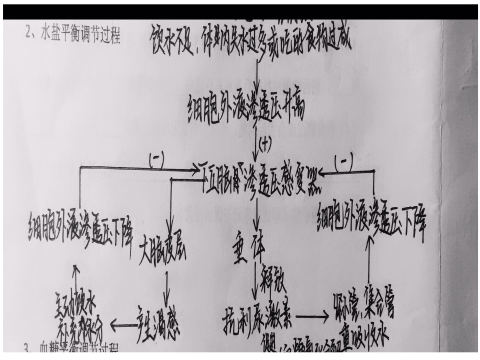 2、水盐平衡调节过程
饮水不足,体内失水过多或吃的食物过咸
细胞外液渗透压升高
(+)
(-)
(-)
下丘脑 渗透压感受器
细胞外液渗透压下降
大脑皮层
垂体
细胞外液渗透压下降
释放
主动饮水
补充水分
产生渴感
抗利尿激素
肾小管、集合管
重吸收水
3、血糖平衡调节过程